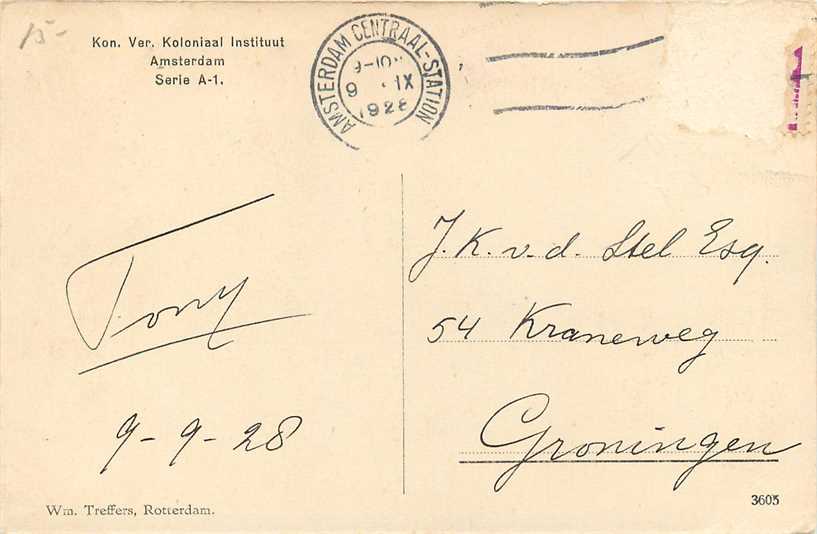 15-
Kon. Ver. Koloniaal Instituut
Amsterdam
Serie A-1.
AMSTERDAM CENTRAAL-STATION
9-10
9 IX
1928
Tony
9-9-28
J. K. v. d. Stel Esq.
54 Kraneweg
Groningen
Wm. Treffers, Rotterdam.
3605